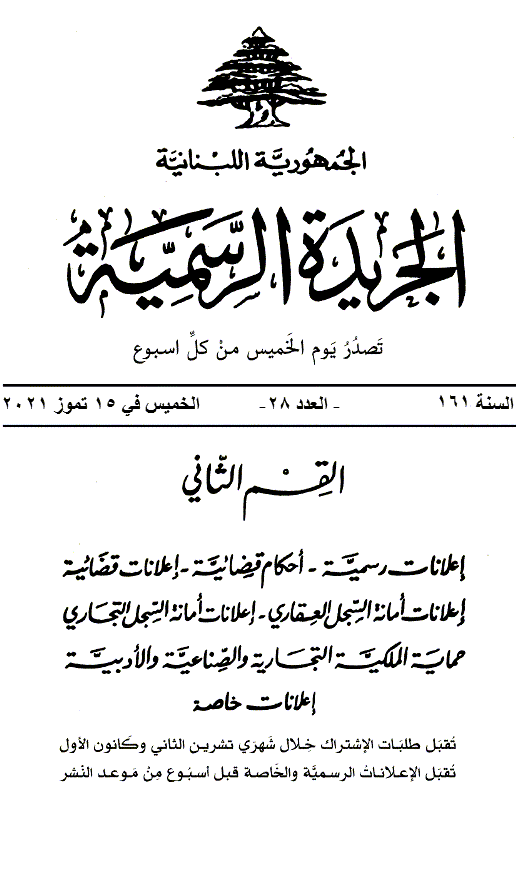 الجُمهُوريَّة اللبْنانيَّة
الجَريدَة الرسَّمِيَّة
تَصدُرُ يَوم الخَميس منْ كلِّ اسبوع
السنة ١٦١ - العدد ٢٨- الخميس في ١٥ تموز ٢٠٢١
القِسْم الثَّاني
إعلانات رسميَّة - أحكام قضائيَّة - إعلانات قضائية
إعلانات أمانة السِّجل العقاري - إعلانات أمانة السِّجل التجاري
حماية الملكيَّة التجارية والصِّناعيَّة والأدبيَّة
إعلانات خاصة
تُقبَل طلبَات الإشتراك خِلال شَهرَي تشرين الثاني وكَانون الأول
تُقبَل الإعلاناتُ الرسميَّة والخَاصة قبل أسبُوع مِنْ مَوعد النَشر